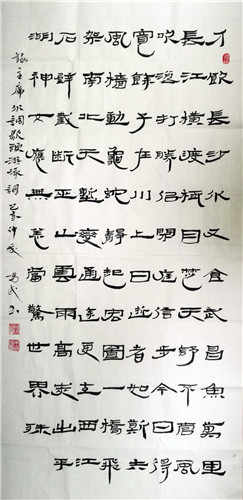 才飲長沙水又食武昌魚萬里
長江橫渡極目楚天舒不管風
吹浪打勝似閒庭信步今日得
寬餘子在川上曰逝者如斯夫
風檣動龜蛇靜起宏圖一橋飛
架南北天塹變通途更立西江
石壁截斷巫山雲雨高峽出平
湖神女應無恙當驚世界殊
主席水調歌頭游泳詞 仲夏